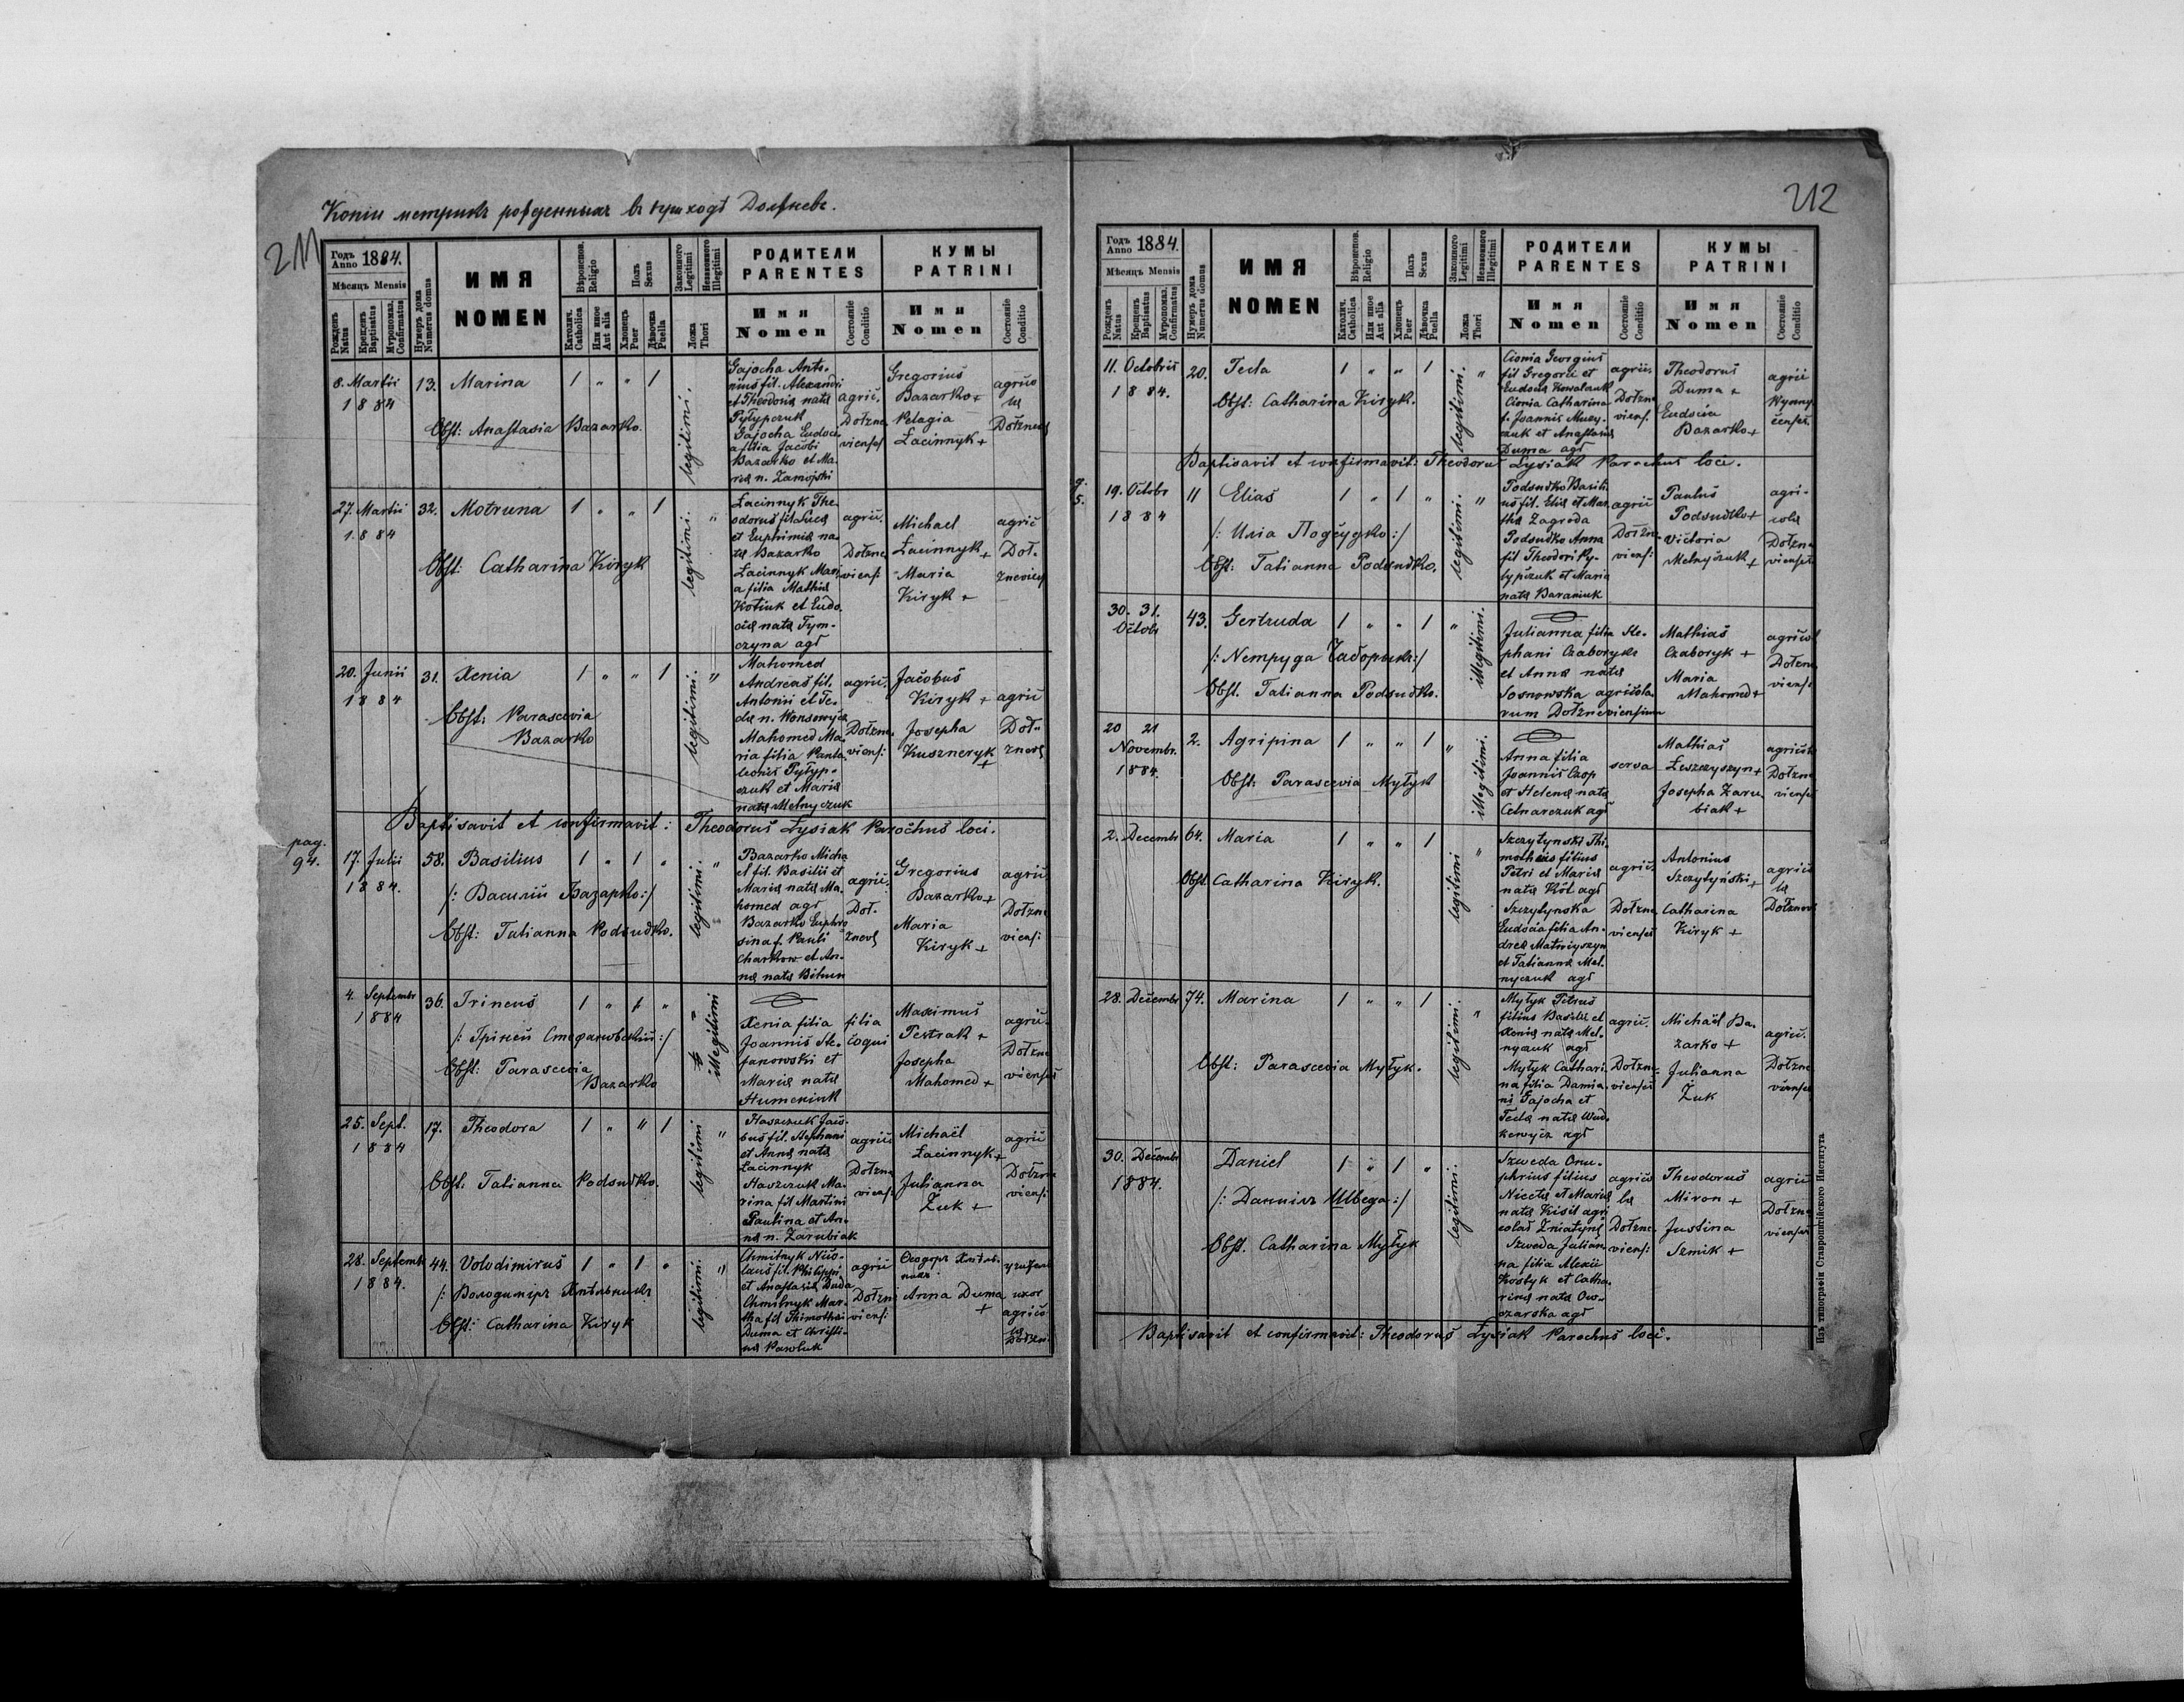 Копіи метрикъ рожденныхъ въ приходѣ Должневѣ.
211
Годъ Anno 1884.
Мѣсяць Mensis
Рожденъ Natus
Крещенъ Baptisatus
Муропомаз. Confirmatus
Нумеръ дома Numerus domus
ИМЯ
NOMEN
Вѣроисповѣд. Religio
Католич. Catholica
Или иное Aut alia
Полъ Sexus
Хлопець Puer
Дѣвочка Puella
Законного Legitimi
Незаконного Illegitimi
Ложа Thori
РОДИТЕЛИ
PARENTES
Имя
Nomen
Состояніе Conditio
КУМЫ
PATRINI
Имя
Nomen
Состояніе Conditio
8. Martii
1884
13.
Marina
1 " " 1
legitimi.
Obst: Anastasia Bazarko.
Gajocha Anto-
niusfil. Alexandri
et Theodoriæ natæ
Pylypczuk
Gajocha Eudoci-
a filia Jacobi
Bazarko et Ma-
riæ n. Zamojski
agric.
Dołzne
vienses
Gregorius
Bazarko +
Pelagia
Łacinnyk +
agrico
læ
27. Martii
1884
32.
Motruna
1 " " 1
legitimi. "
Obst: Catharina Kiryk
Łacinnyk The-
odorus fil. Lucæ
et Euphimiæ na-
tæ Bazarko
Łacinnyk Mari
a filia Mathiæ
Kotiuk et Eudo
ciæ natæ Tym-
czyna agr
agric.
Dołzne
viens:
Michael
Łacinnyk +
Maria
Kiryk +
agric
Doł-
20. Junii
1884
31.
Xenia
1 " " 1
legitimi. "
Obst: Parascevia
Bazarko
Mahomed
Andreas fil.
Antonii et Te-
clæ n.
Mahomed Ma-
ria filia Panta-
leonis Pylyp-
czuk et Mariæ
natæ Melnyczuk
agric.
Dołzne
viens:
Jacobus
Kiryk +
Josepha
Kuszneryk
+
agric
Doł-
Baptisavit et confirmavit: Theodorus Łysiak Parochus loci.
pag.
94.
17. Julii
1884.
58.
Basilius
1 " 1 "
legitimi. "
/: Василій Базарко:/
Obst: Tatianna Podsudko.
Bazarko Micha
el fil. Basilii et
Mariæ natæ Ma-
homed agr
Bazarko Euphro
sina f. Pauli
Charkow et An-
næ natæ Bihun
agric.
Doł.
Gregorius
Bazarko +
Maria
Kiryk +
agric.
Dołzne
viens:
4. Septembr
1884
36.
Irineus
1 " 1 "
illegitimi
/: Іриней Стефановскій:/
Obst: Parascevia
Bazarko
Xenia filia
Joannis Ste-
fanowski et
Mariæ natæ
Humeniuk
filia
coqui
Maximus
Pestrak +
Josepha
Mahomed +
agric.
Dołzne
vienses
25. Sept.
1884
17.
Theodora
1 " " 1
legitimi "
Obst: Tatianna Podsudko.
Haszczuk Jaco-
bus fil. Stephani
et Annæ natæ
Łacinnyk
Haszczuk Ma-
rina fil Martini
Paulina et An-
næ n. Zarubiak
agric
Dołzne
viens:
Michaël
Łacinnyk +
Julianna
Żuk +
agric
Dołzne
viens:
28. Septembr
1884.
44.
Volodimirus
1 " 1 "
legitimi. "
/: Володиміръ Хмѣльникъ
Obst: Catharina Kiryk
Chmilnyk Nico-
laus fil. Philippi
et Anastasiæ Duda
Chmilnyk Mar-
tha fil Thimothei
Duma et Christi-
næ Pawluk
agric
Dołzne
viens:
Ѳеодоръ Хмѣль-
никъ
Anna Duma
+
uxor
agrico
læ
Dołzn.
212
Годъ Anno 1884.
Мѣсяць Mensis
Рожденъ Natus
Крещенъ Baptisatus
Муропомаз. Confirmatus
Нумеръ дома Numerus domus
ИМЯ
NOMEN
Вѣроисповѣд. Religio
Католич. Catholica
Или иное Aut alia
Полъ Sexus
Хлопець Puer
Дѣвочка Puella
Законного Legitimi
Незаконного Illegitimi
Ложа Thori
РОДИТЕЛИ
PARENTES
Имя
Nomen
Состояніе Conditio
КУМЫ
PATRINI
Имя
Nomen
Состояніе Conditio
11. Octobris
1884.
20.
Tecla
1 " " 1
legitimi. "
Obst: Catharina Kiryk.
Cionia Georgius
fil Gregorii et
Eudociæ Kowalczuk
Cionia Catharina
f. Joannis Muzy-
czuk et Anastasiæ
Duma agr
agric.
Dołzne
viens.
Theodorus
Duma +
Eudocia
Bazarko +
agric
Baptisavit et confirmavit: Theodorus Łysiak Parochus loci.
19. Octobr
1884
11
Elias
1 " 1 "
legitimi. "
/: Илія Подсудко:/
Obst: Tatianna Podsudko.
Podsudko Basili-
us fil. Eliæ et Mar-
thæ Zagroda
Podsudko Anna
fil Theodori Py-
lypczuk et Mariæ
natæ Baraniuk
agric
Dołzne
viens:
Paulus
Podsudko +
Victoria
Melnyczuk +
agri-
colæ
Dołzne
vienses
30. 31.
Octobr
43.
Gertruda
1 " " 1
" illegitimi.
Obst. Tatianna Podsudko.
Julianna filia Ste-
phani Czaboryk
et Annæ natæ
Sosnowska agricola-
rum Dołzneviensium
Mathias
Czaboryk +
Maria
Mahomed +
agricol
Dołzne
viens:
20 21
Novembr.
1884.
2.
Agripina
1 " " 1
" illegitimi.
Obst: Parascevia Mylyk
Anna filia
Joannis Czop
et Helenæ natæ
Celnarczuk agr
serva
Mathias
Leszczyszyn +
Josepha Zaru
biak +
Dołzne
vienses
2. Decembr
64.
Maria
1 " " 1
legitimi "
Obst. Catharina Kiryk.
Szczytynski Thi-
motheus filius
Petri et Mariæ
natæ Kôt agr
Szczytynska
Eudocia filia An-
dreæ Matwiyszyn
et Tatiannæ Mel-
nyczuk agr
agric.
Dołzne
vienses
Antonius
Szczytyński +
Catharina
Kiryk +
agrico
læ
28. Decembr
74.
Marina
1 " " 1
legitimi. "
Obst: Parascevia Mylyk.
Mylyk Petrus
filius Basilii et
Xeniæ natæ Mel-
nyczuk agr
Mylyk Cathari-
na filia Damia-
ni Gajocha et
Teclæ natæ Wud-
kewycz agr
agric.
Dołzne-
vienses
Michaël Ba-
zarko +
Julianna
Żuk
agric.
Dołzne
vienses
30. Decembr
1884.
Daniel
1 " 1 "
legitimi.
/: Даниілъ Шведа:/
Obst. Catharina Mylyk
Szweda Onu-
phrius filius
Nicetæ et Mariæ
natæ Kisil agri
colar Zniatyn
Szweda Julian-
na filia Alexii
Kostyk et Catha-
rinæ natæ Ow-
czarska agr
agrico
læ
Dołzne-
viens:
Theodorus
Miron +
Justina
Szmik +
agric
Dołzne
vienses
Baptisavit et confirmavit: Theodorus Łysiak Parochus loci.
Изъ типографіи Ставропигійского Института